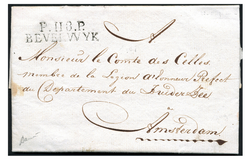 P.118.P.
BEVERWYK
A
Monsieur le Comte de Celles
membre de la Legion d'honneur Prefet
du Departement du Zuiderzée
Amsterdam